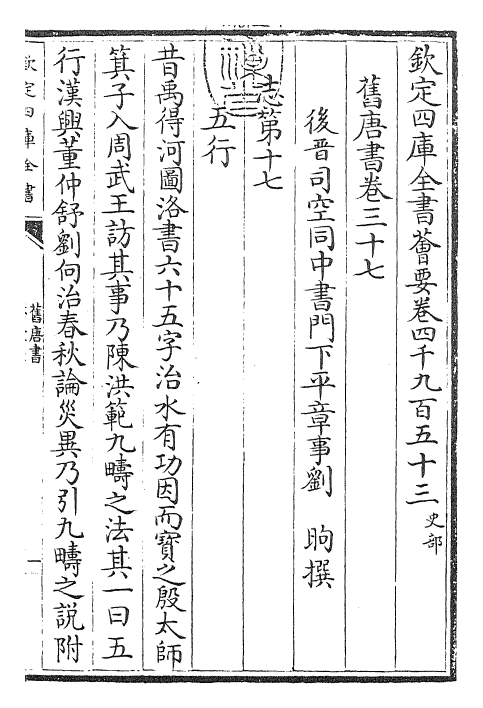 欽定四庫全書薈要卷四千九百五十三 史部
舊唐書卷三十七
後晉司空同中書門下平章事劉 昫撰
志第十七
五行
昔禹得河圖洛書六十五字治水有功因而寳之殷太師
箕子入周武王訪其事乃陳洪範九疇之法其一曰五
行漢興董仲舒劉向治春秋論災異乃引九疇之説附
欽定四庫全書
舊唐書
一